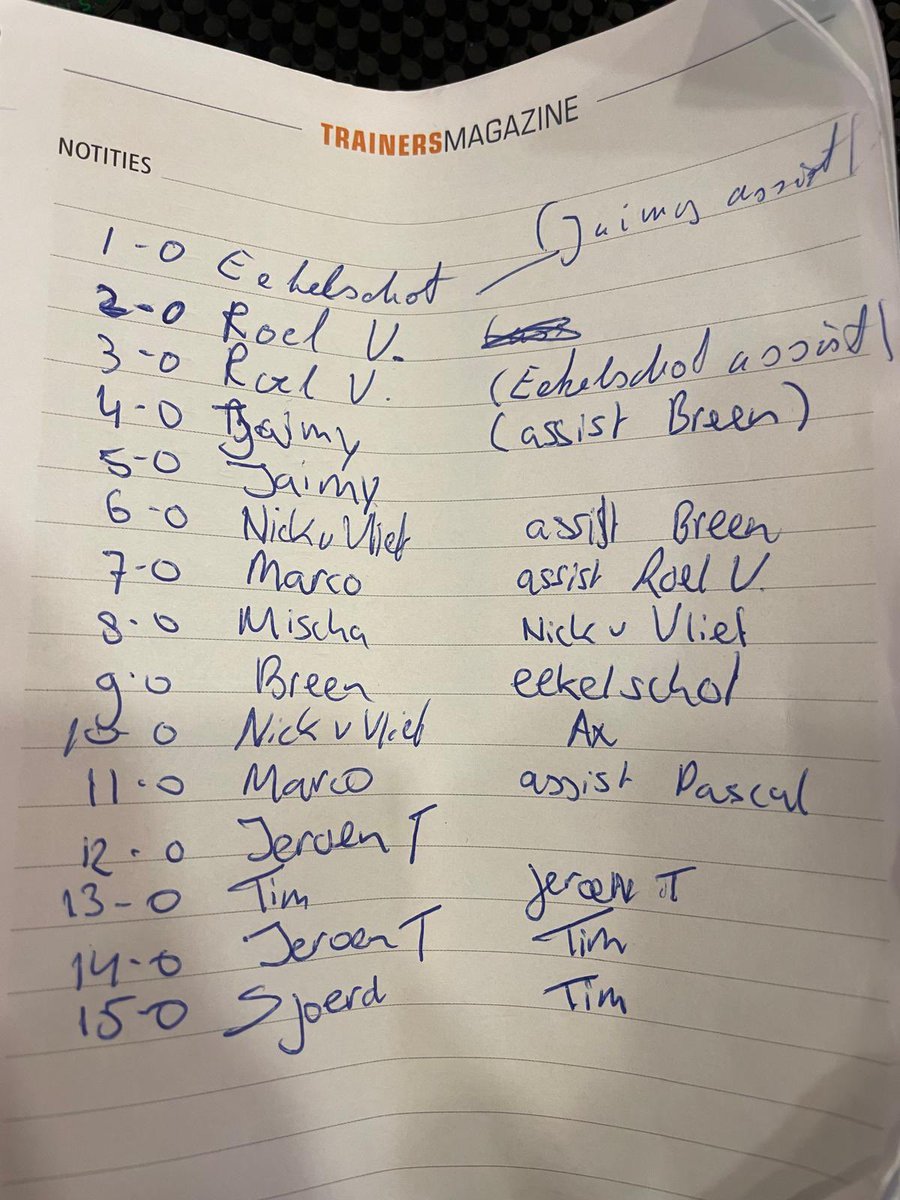 TRAINERSMAGAZINE
NOTITIES
1-0 Eekelschot (Jaimy assist)
2-0 Roel V.
3-0 Roel V. (Eekelschot assist)
4-0 Jaimy (assist Breen)
5-0 Jaimy
6-0 Nick v Vliet assist Breen
7-0 Marco assist Roel V.
8-0 Mischa Nick v Vliet
9-0 Breen eekelschot
10-0 Nick v Vliet Ax
11-0 Marco assist Pascal
12-0 Jeroen T
13-0 Tim jeroen T
14-0 Jeroen T Tim
15-0 Sjoerd Tim